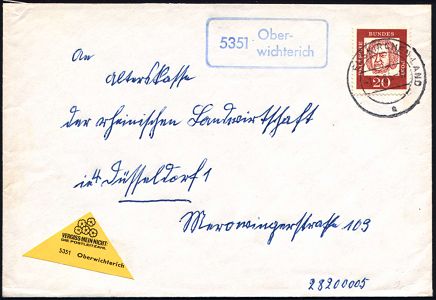 5351 Ober-
wichterich
DEUTSCHE BUNDESPOST
20
An
Alterskasse
der rheinischen Landwirtschaft
in 4 Düsseldorf 1
Merowingerstraße 109
VERGISS MEIN NICHT
DIE POSTLEITZAHL
5351 Oberwichterich
28200005